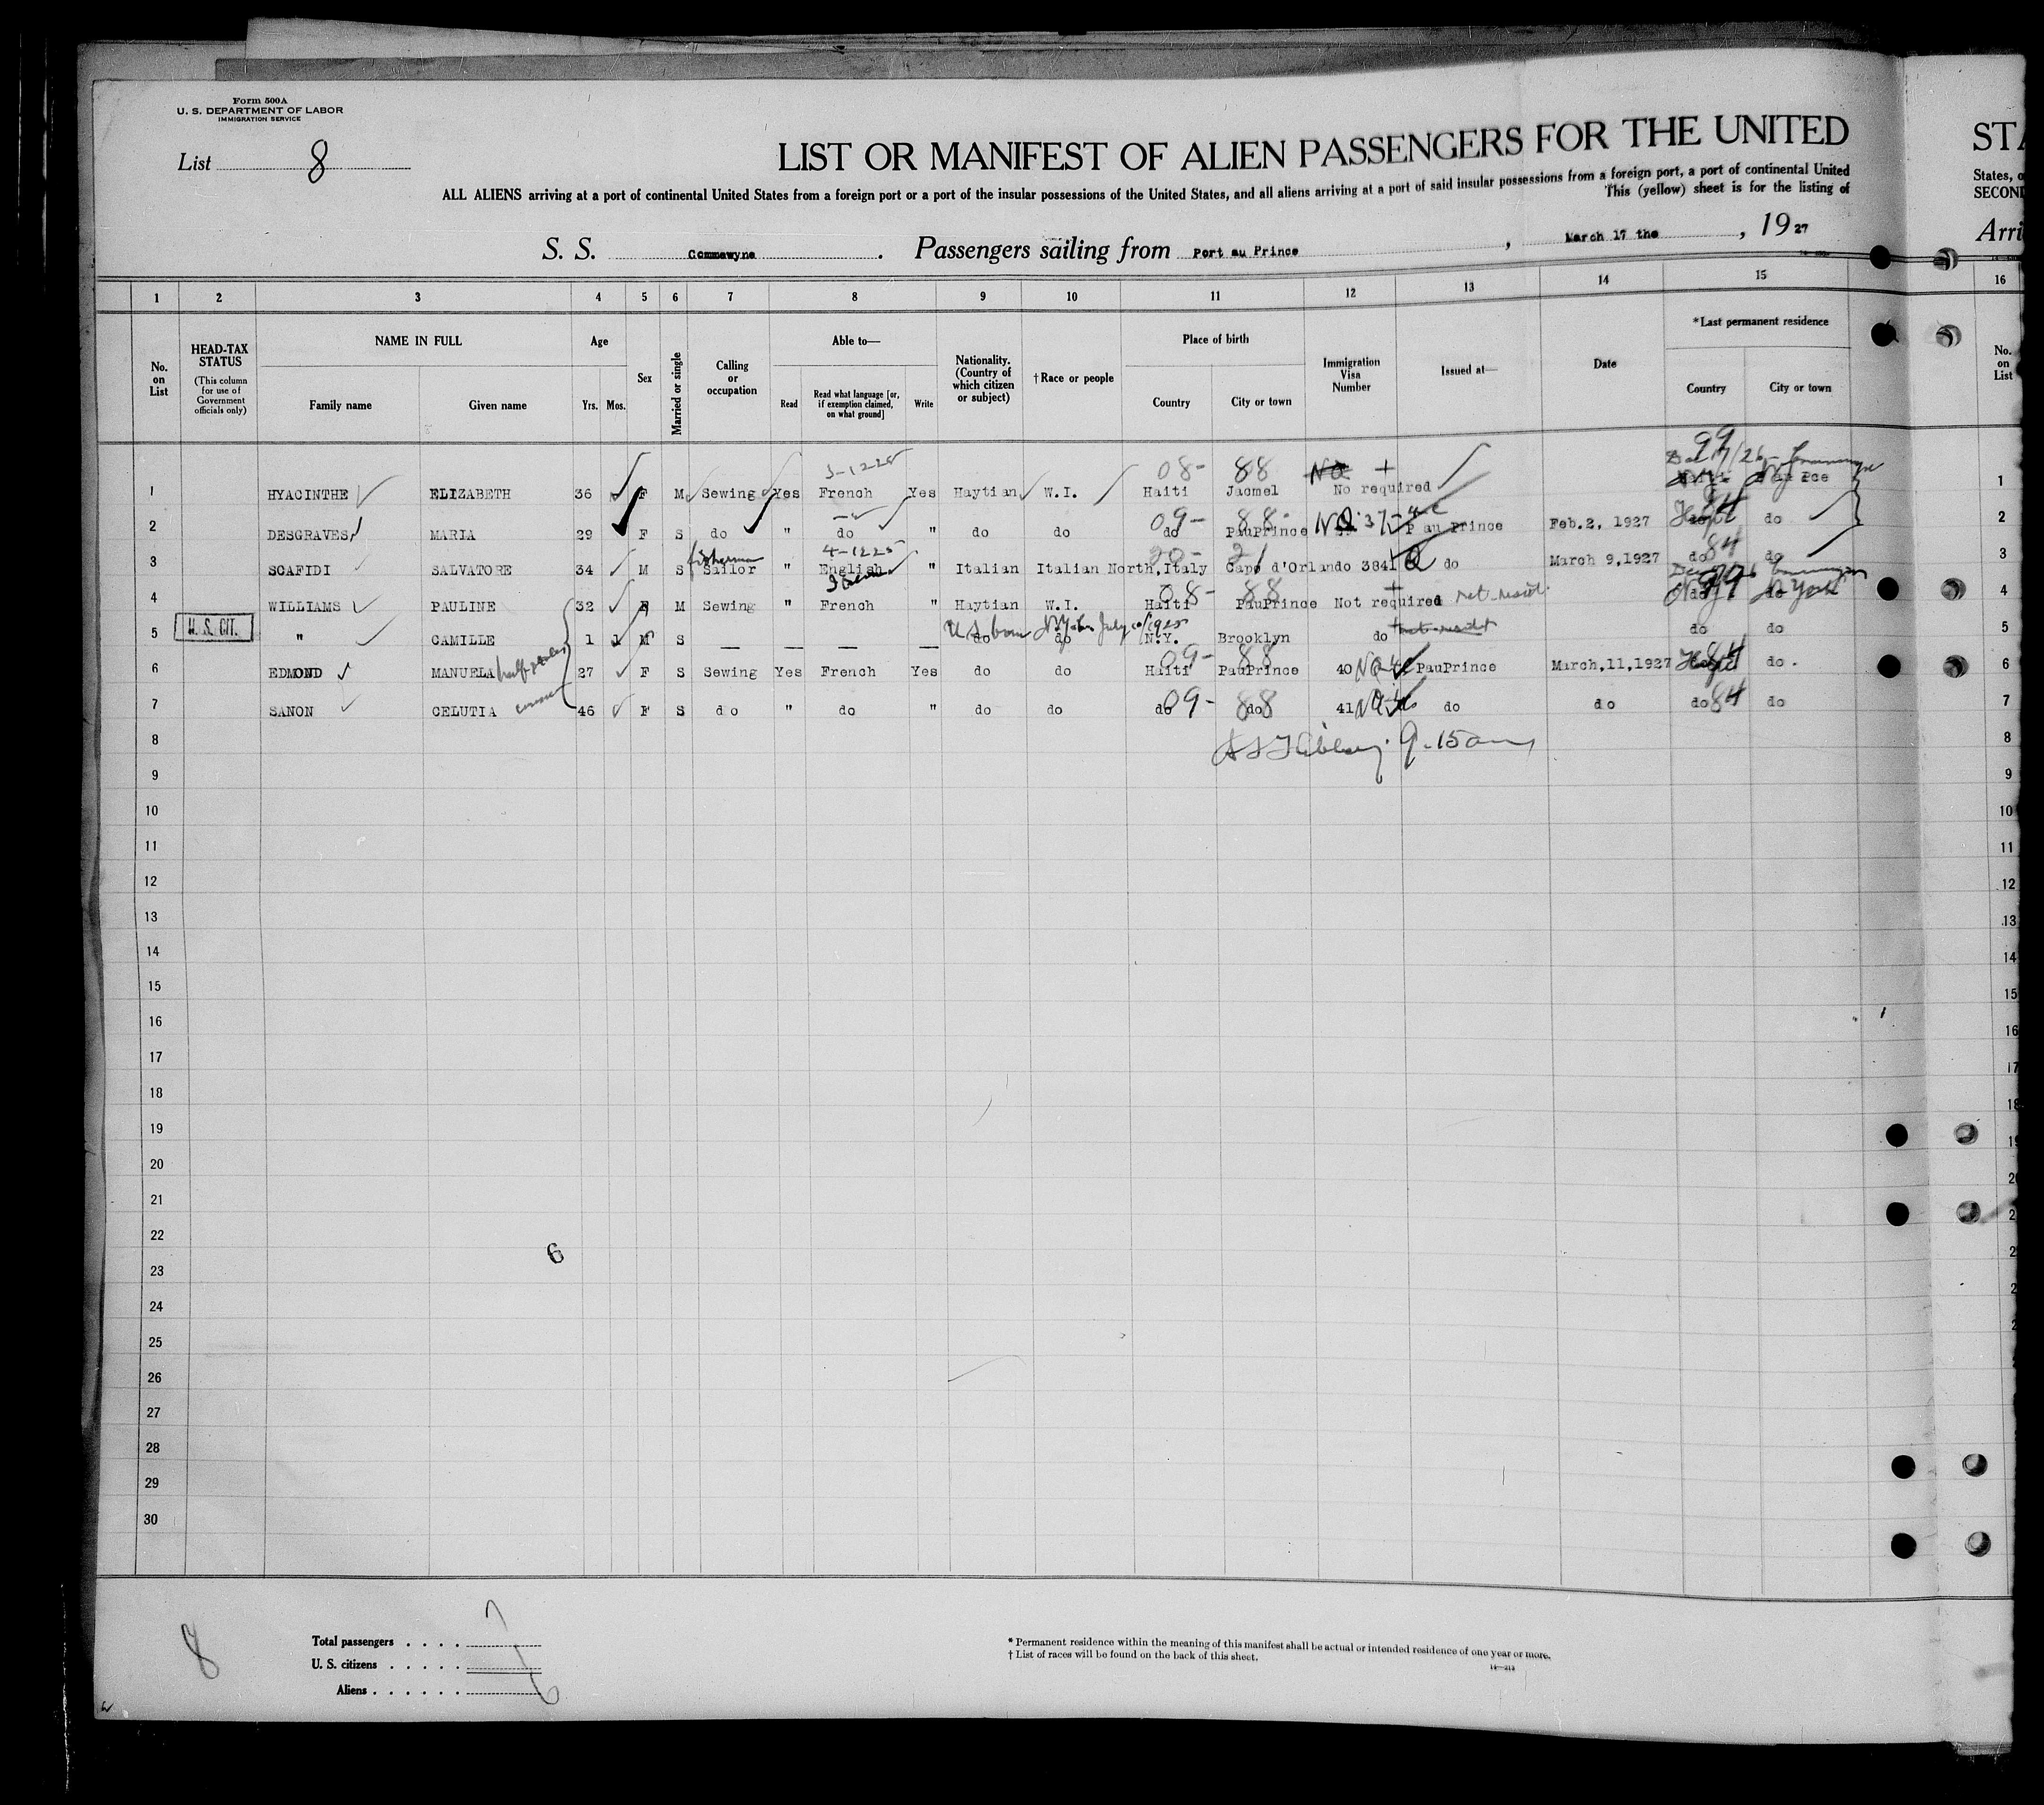 Form 500A
U. S. DEPARTMENT OF LABOR
IMMIGRATION SERVICE
List 8
LIST OR MANIFEST OF ALIEN PASSENGERS FOR THE UNITED
STA
ALL ALIENS arriving at a port of continental United States from a foreign port or a port of the insular possessions of the United States, and all aliens arriving at a port of said insular possessions from a foreign port, a port of continental United
States, o
This (yellow) sheet is for the listing of
SECOND
S. S. Commewyne . Passengers sailing from Port au Prince , March 17 the , 19 27
Arri
1 2 3 4 5 6 7 8 9 10 11 12 13 14 15 16
No. on List
HEAD-TAX STATUS
(This column for use of Government officials only)
NAME IN FULL
Family name Given name
Age
Yrs. Mos.
Sex
Married or single
Calling or occupation
Able to—
Read Read what language [or, if exemption claimed, on what ground] Write
Nationality. (Country of which citizen or subject)
†Race or people
Place of birth
Country City or town
Immigration Visa Number
Issued at—
Date
*Last permanent residence
Country City or town
No. on List
3-1225 08- 88 No + 99
1 HYACINTHE ELIZABETH 36 F M Sewing Yes French Yes Haytian W.I. Haiti Jacmel No required 1
09- 88- 84
2 DESGRAVES MARIA 29 F S do " do " do do do PauPrince NQ 37 P au Prince Feb.2, 1927 do 2
fisherman 4-1225 20- 21 84
3 SCAFIDI SALVATORE 34 M S Sailor " English " Italian Italian North,Italy Capo d'Orlando 3841 Q do March 9,1927 do do 3
08- 88 + 99
4 WILLIAMS PAULINE 32 F M Sewing " French " Haytian W.I. Haiti PauPrince Not required ret. resid. do do N York 4
U. S. CIT.
US born NY July 1925
5 " CAMILLE 1 1 M S — — — — do do N.Y. Brooklyn do do do 5
09- 88 84
6 EDMOND MANUELA 27 F S Sewing Yes French Yes do do Haiti PauPrince 40 NQ PauPrince March,11,1927 do . 6
7 SANON CELUTIA cousin 46 F S do " do " do do do 09- do 88 41 NQ do do do 84 do 7
8 9-15am 8
9 9
10 10
11 11
12 12
13 13
14 14
15 15
16 16
17 17
18 18
19 19
20 2
21 2
22 2
6
23 2
24 2
25 2
26 2
27
28
29
30
8
Total passengers . . . . 7
U. S. citizens . . . . . 1
Aliens . . . . . . 6
* Permanent residence within the meaning of this manifest shall be actual or intended residence of one year or more.
† List of races will be found on the back of this sheet.
14—212